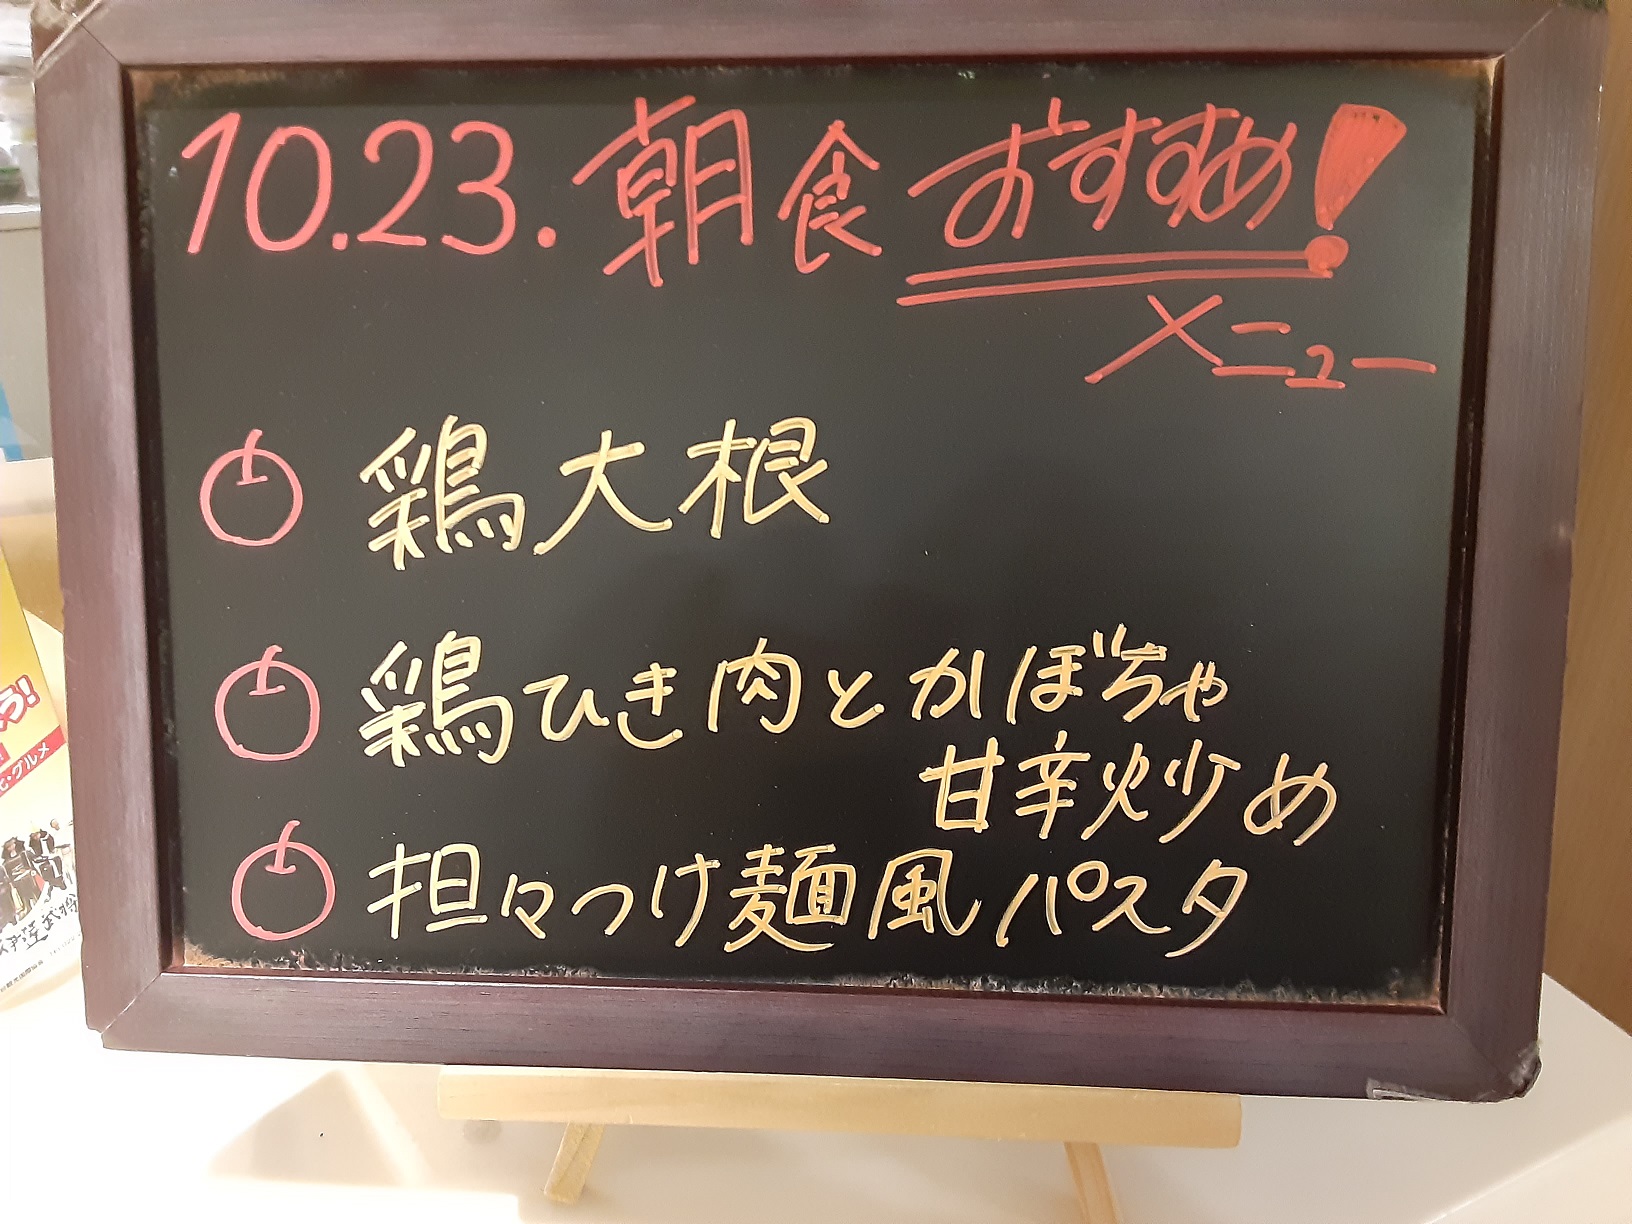 10.23. 朝食 おすすめ!
メニュー
鶏大根
鶏ひき肉とかぼちゃ
甘辛炒め
担々つけ麺風パスタ
う!
グルメ